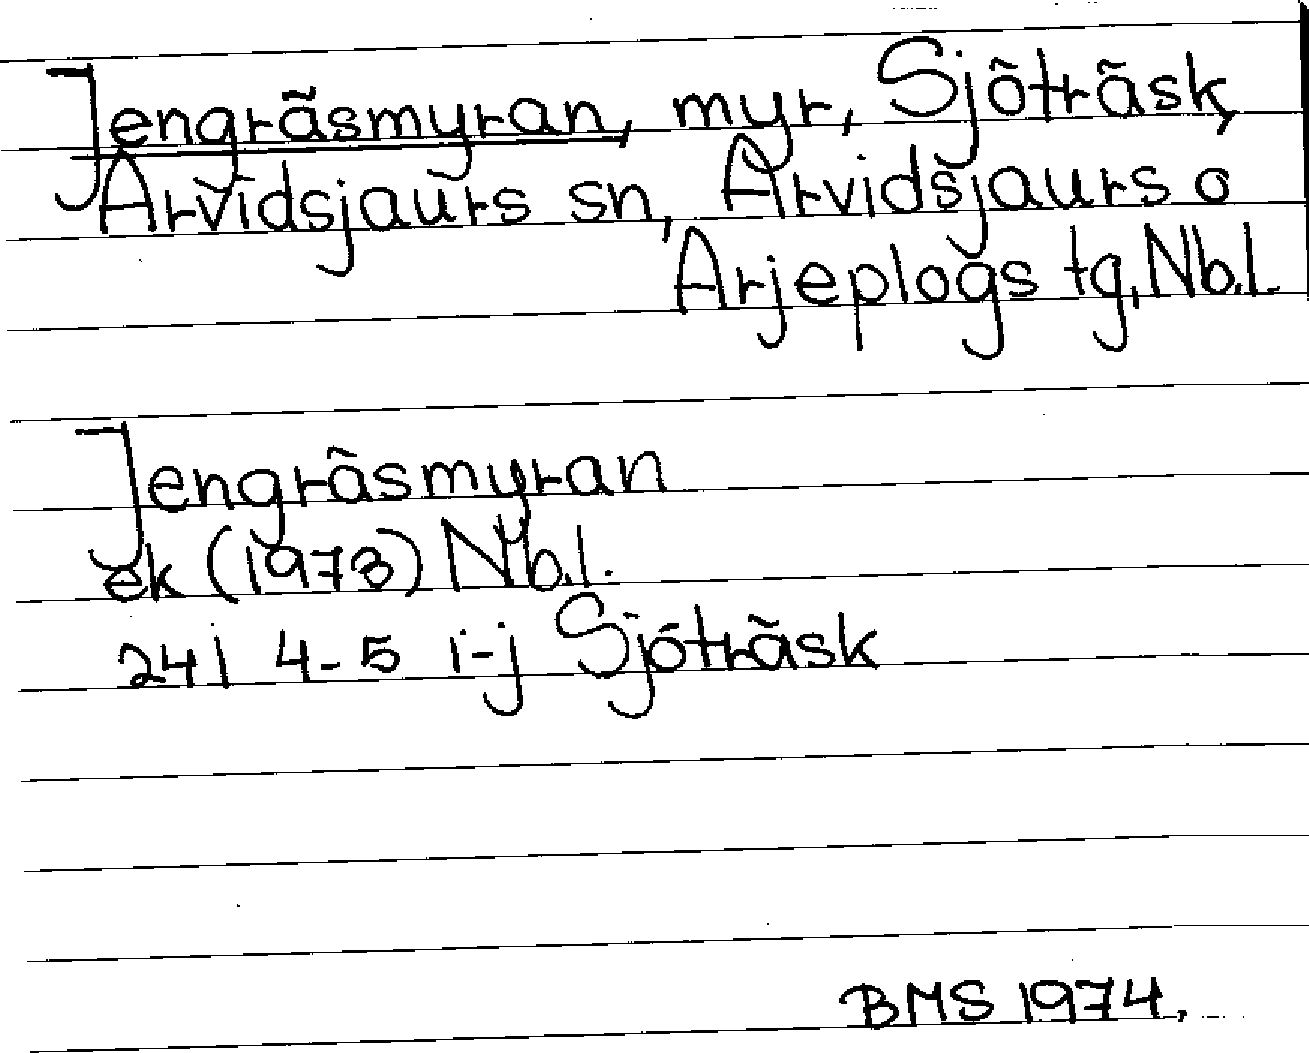 Jengräsmyran, myr, Sjöträsk,
Arvidsjaurs sn, Arvidsjaurs o
Arjeplogs tg, Nb.l.
Jengräsmyran
ek (1973) Nb.l.
24I 4-5 i-j Sjöträsk
BMS 1974.